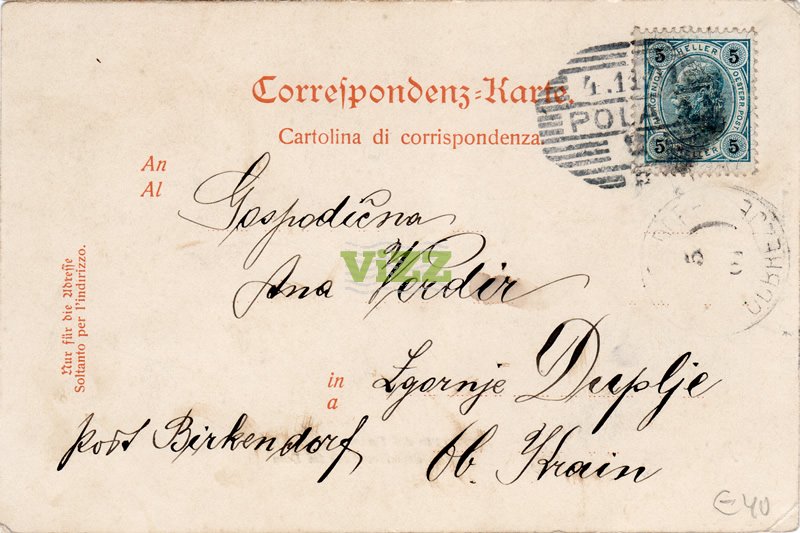 Correspondenz-Karte.
Cartolina di corrispondenza.
An
Al
Nur für die Adresse
Soltanto per l'indirizzo.
5 HELLER 5
OESTERR. POST
5 HELLER 5
4.11
POLA
Gospodična
Vizz
Ana Verdir
in
a
Zgornje Duplje
Post Birkendorf
Ob. Krain
€40